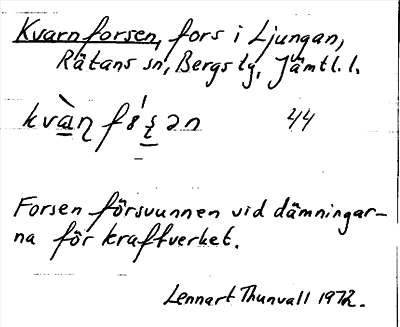 Kvarnforsen, fors i Ljungan,
Rätans sn, Bergs tg, Jämtl. l.
44
Forsen försvunnen vid dämningar-
na för kraftverket.
Lennart Thunvall 1972.